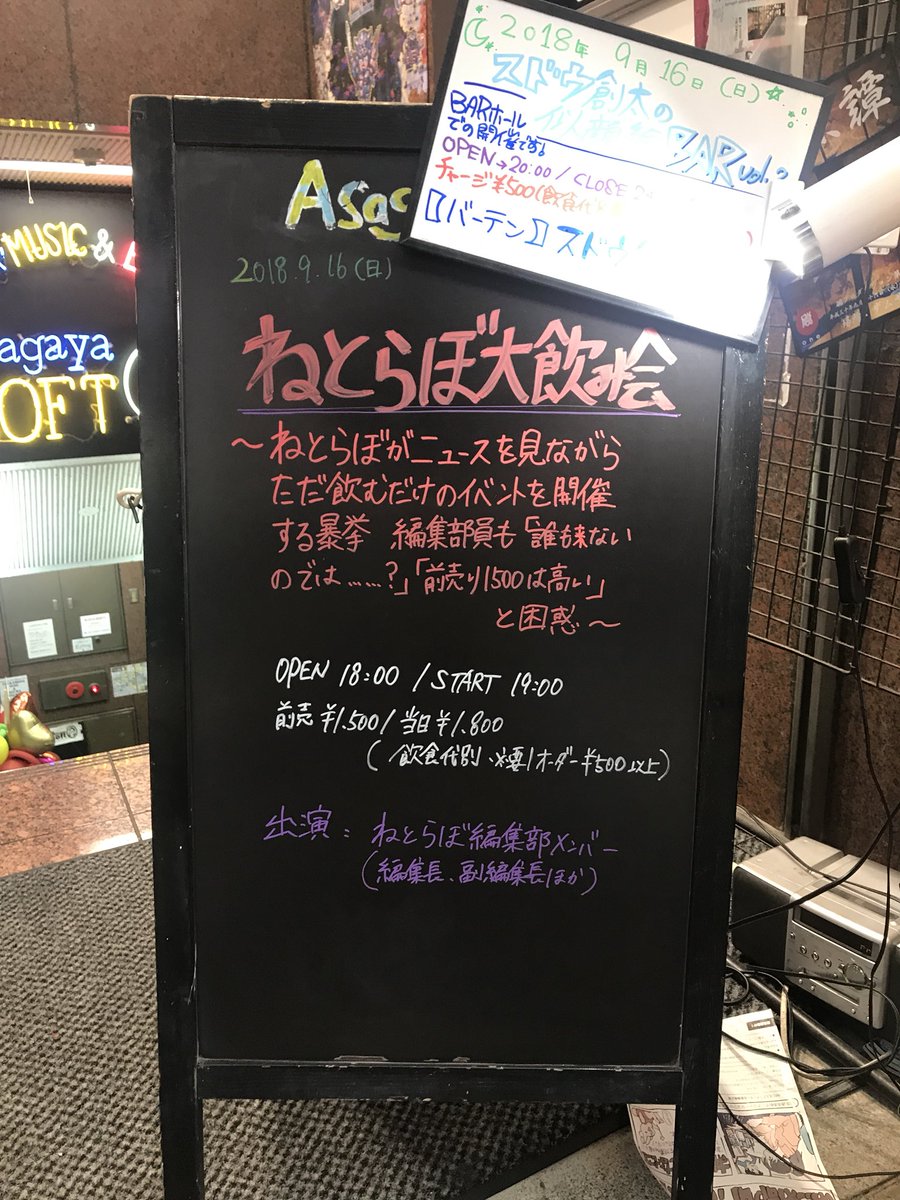 2018年 9月16日(日)
スドウ創太の
似顔絵BAR vol.
BARホール
での開催です!
OPEN→20:00 / CLOSE
チャージ¥500(飲食代
【バーテン】スドウ
Asaga
2018.9.16(日)
ねとらぼ大飲み会
〜ねとらぼがニュースを見ながら
ただ飲むだけのイベントを開催
する暴挙 編集部員も「誰も来ない
のでは……?」「前売り1500は高い」
と困惑〜
OPEN 18:00 / START 19:00
前売¥1.500/当日¥1.800
(飲食代別 ※要1オーダー¥500以上)
出演:ねとらぼ編集部メンバー
(編集長、副編集長ほか)
MUSIC &
agaya
OFT
譚